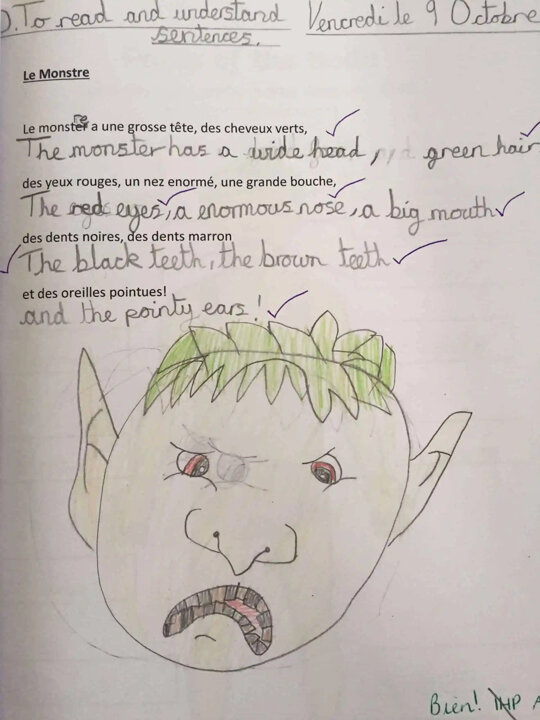 O.To read and understand Vencredi le 9 Octobre
sentences.
Le Monstre
Le monstre a une grosse tête, des cheveux verts,
The monster has a wide head, green hair
des yeux rouges, un nez enormé, une grande bouche,
The red eyes, a enormous nose, a big mouth
des dents noires, des dents marron
The black teeth, the brown teeth
et des oreilles pointues!
and the pointy ears!
Bien!